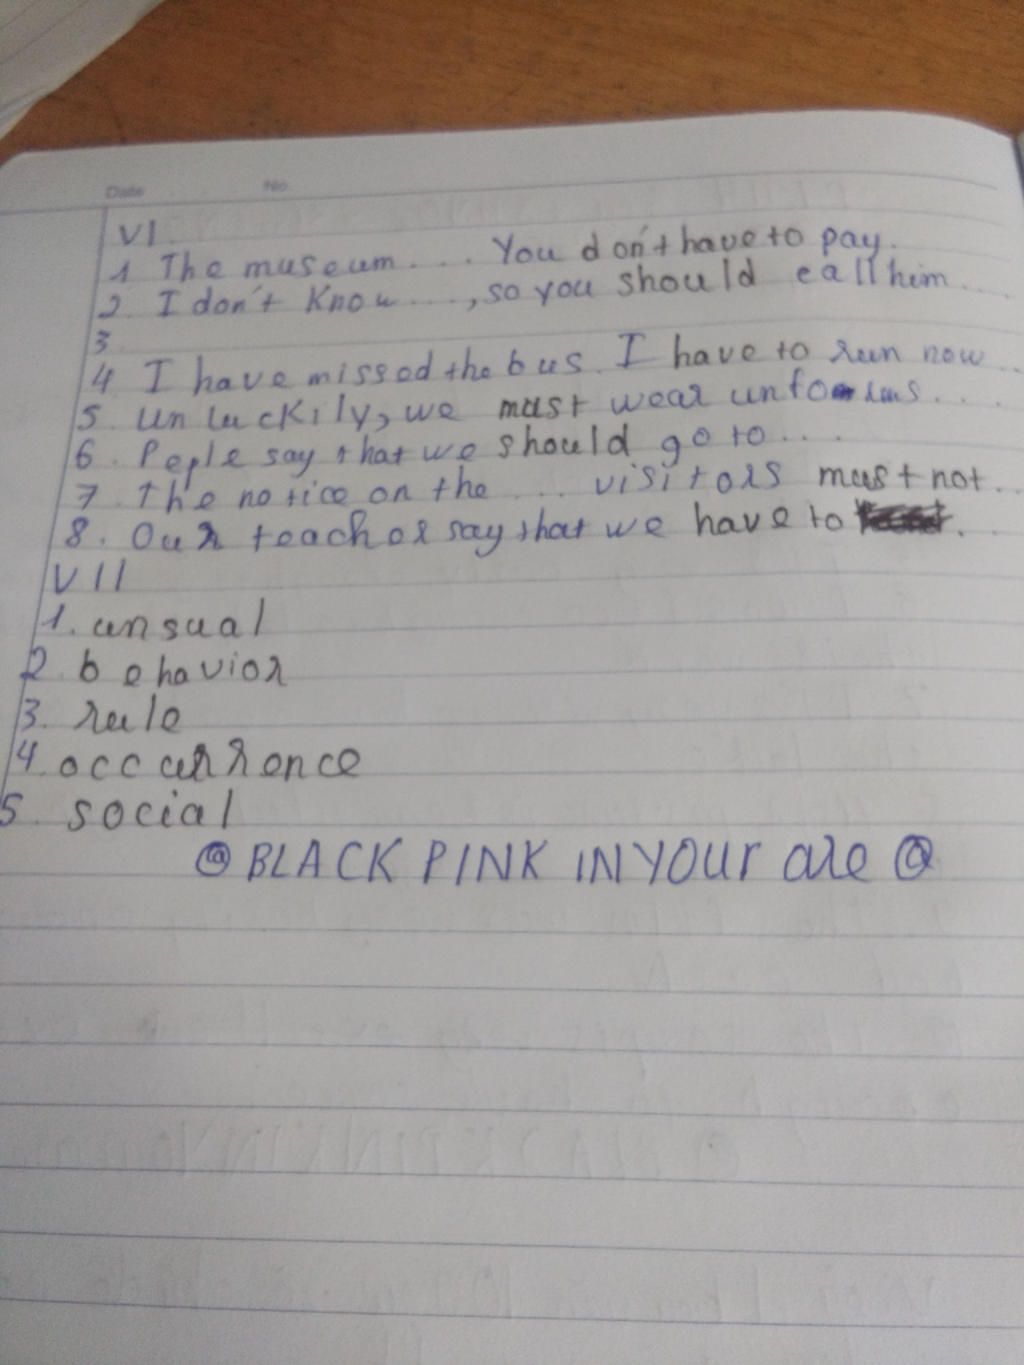 Date No.
VI.
1 The museum.... You don't have to pay.
2. I don't know....., so you should call him....
3
4 I have missed the bus. I have to run now...
5. unluckily, we must wear unforms....
6. Peple say that we should go to....
7. The notice on the .... visitors must not...
8. Our teacher say that we have to ....
VII
1. unsual
2. behavior
3. rule
4. occurrence
5. social
@ BLACK PINK IN YOUr are @